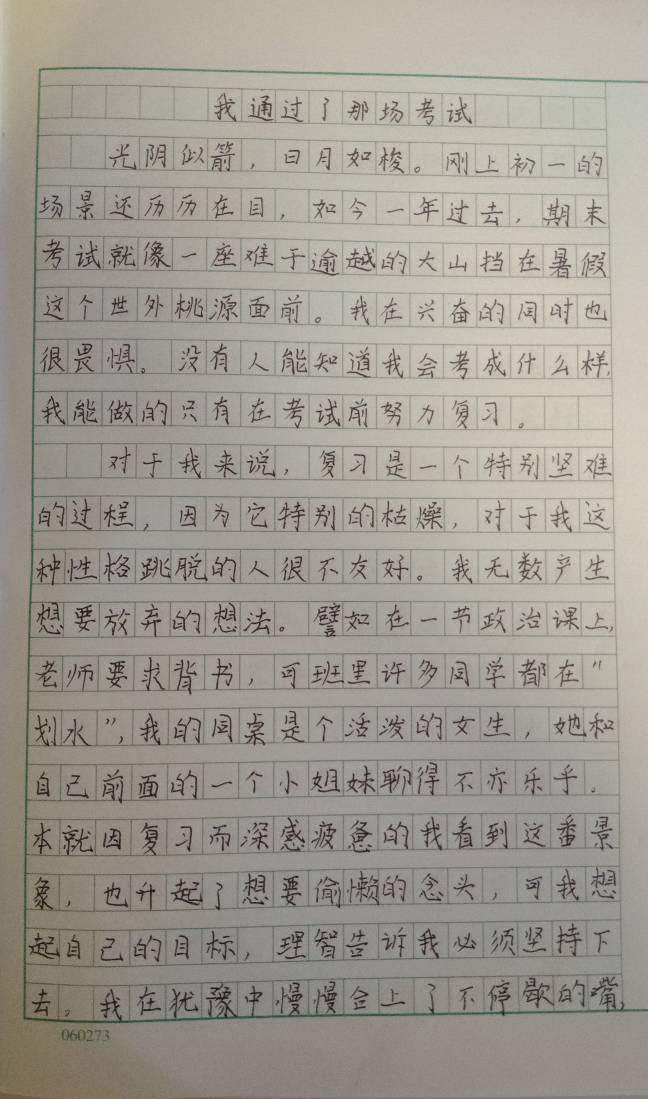 我通过了那场考试
光阴似箭，日月如梭。刚上初一的
场景还历历在目，如今一年过去，期末
考试就像一座难于逾越的大山挡在暑假
这个世外桃源面前。我在兴奋的同时也
很畏惧。没有人能知道我会考成什么样，
我能做的只有在考试前努力复习。
对于我来说，复习是一个特别坚难
的过程，因为它特别的枯燥，对于我这
种性格跳脱的人很不友好。我无数产生
想要放弃的想法。譬如在一节政治课上，
老师要求背书，可班里许多同学都在“
划水”，我的同桌是个活泼的女生，她和
自己前面的一个小姐妹聊得不亦乐乎。
本就因复习而深感疲惫的我看到这番景
象，也升起了想要偷懒的念头，可我想
起自己的目标，理智告诉我必须坚持下
去。我在犹豫中慢慢合上了不停歇的嘴，
060273